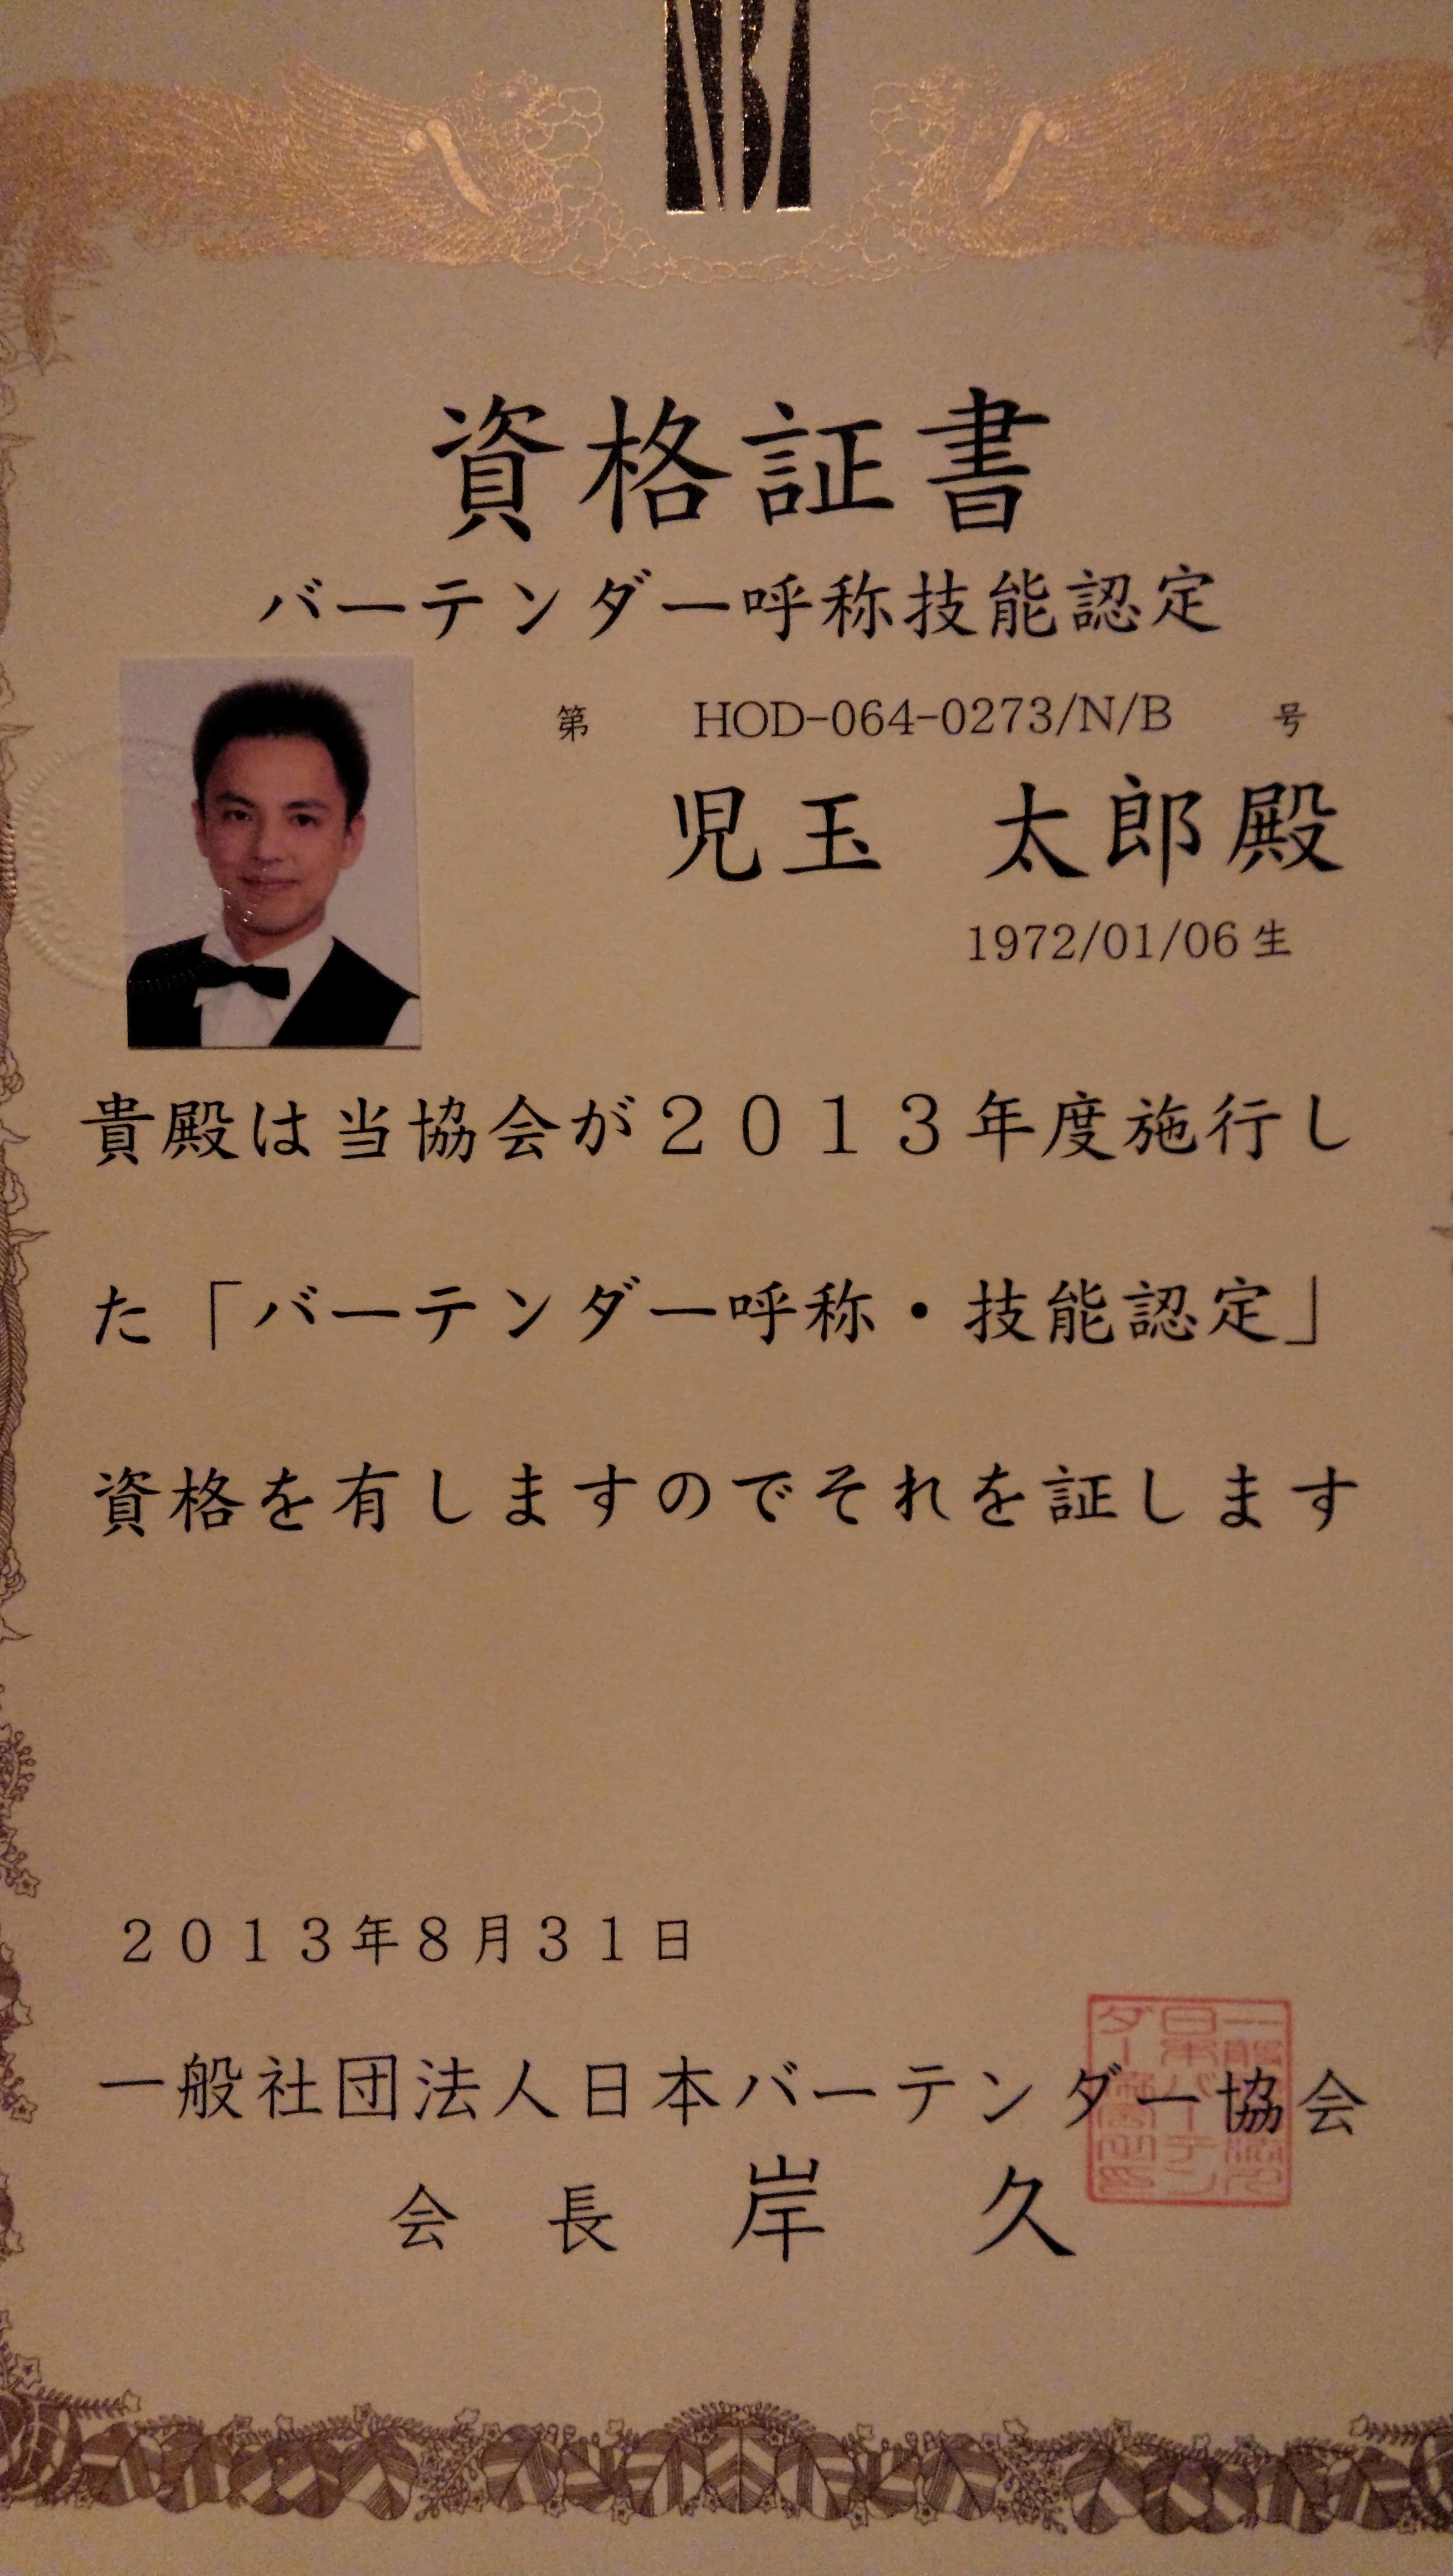 NBA
資格証書
バーテンダー呼称技能認定
第 HOD-064-0273/N/B 号
児玉 太郎殿
1972/01/06生
貴殿は当協会が２０１３年度施行し
た「バーテンダー呼称・技能認定」
資格を有しますのでそれを証します
２０１３年８月３１日
一般社団法人日本バーテンダー協会
会長 岸 久